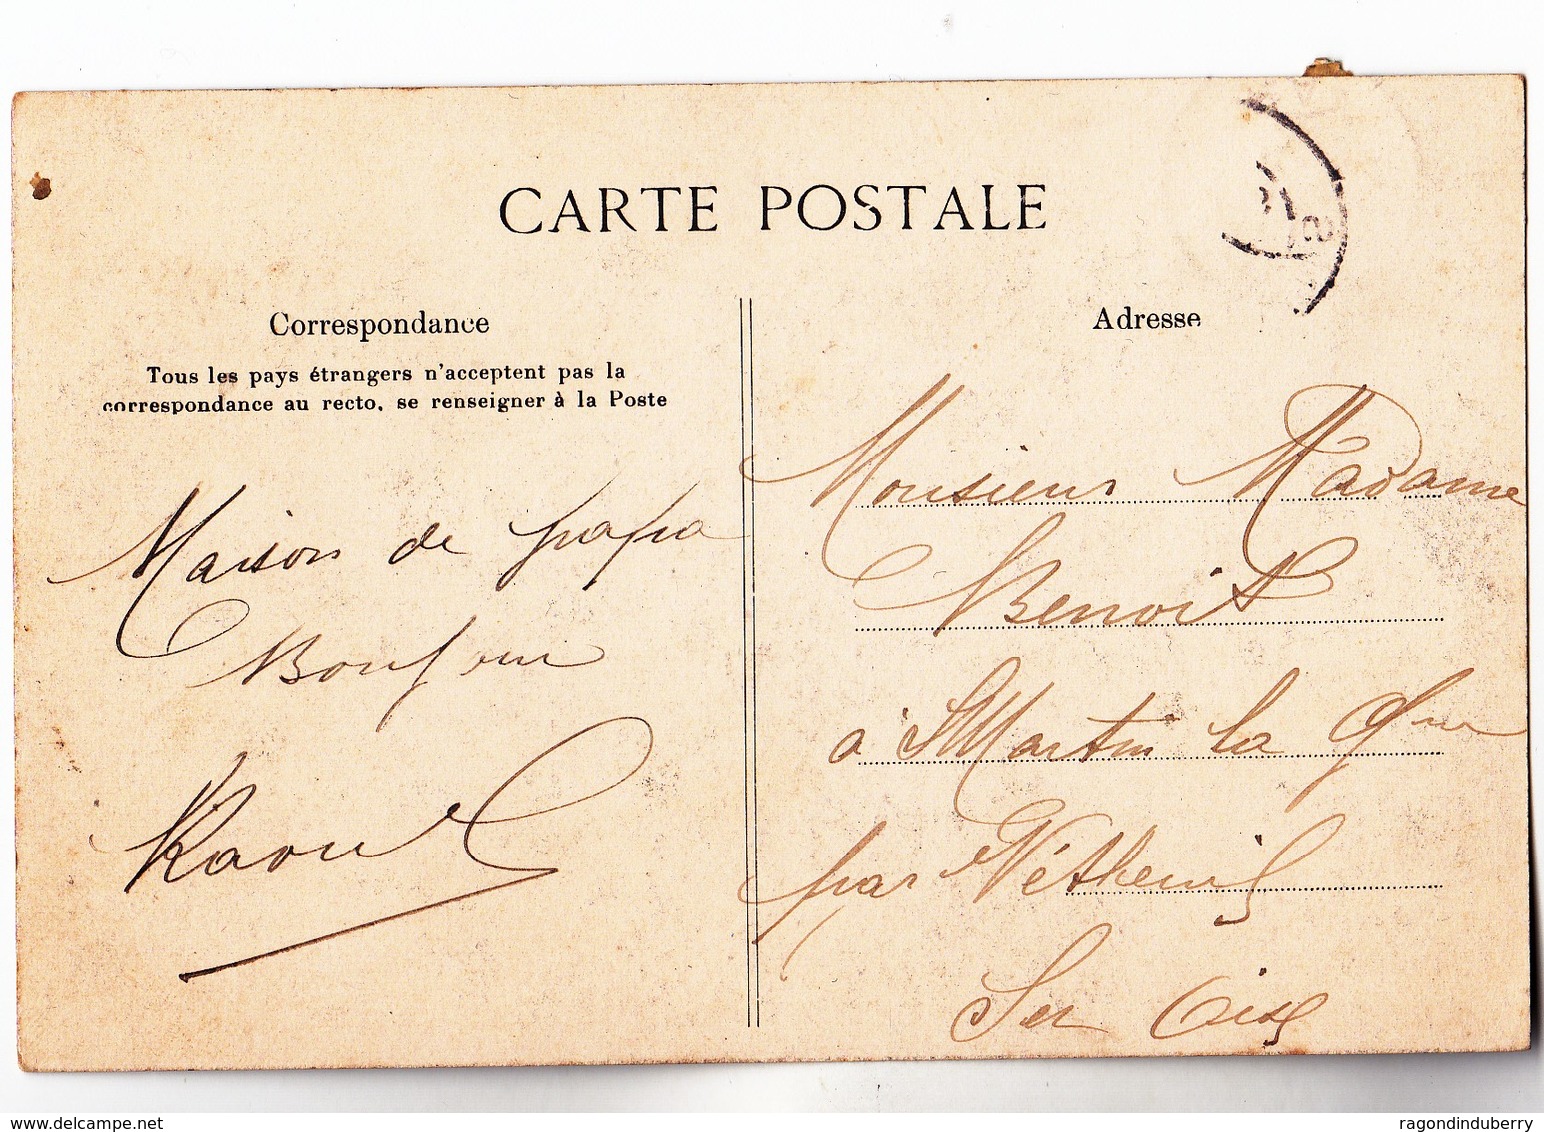 CARTE POSTALE
Correspondance
Tous les pays étrangers n'acceptent pas la
correspondance au recto, se renseigner à la Poste
Maison de papa
Bonjour
Raoul
Adresse
Monsieur Madame
Benoit
à St Martin la Gne
par Vétheuil
Set Oise
delcampe.net
ragondinduberry